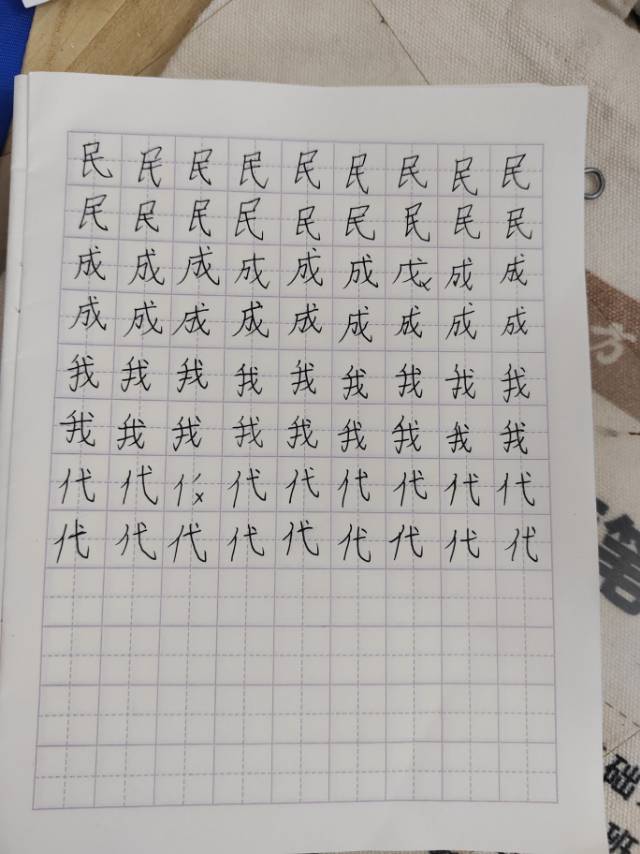 民民民民民民民民民
民民民民民民民民民
成成成成成成戊成成
成成成成成成成成成
我我我我我我我我我
我我我我我我我我我
代代代代代代代代
代代代代代代代代代
方
笔
础
班